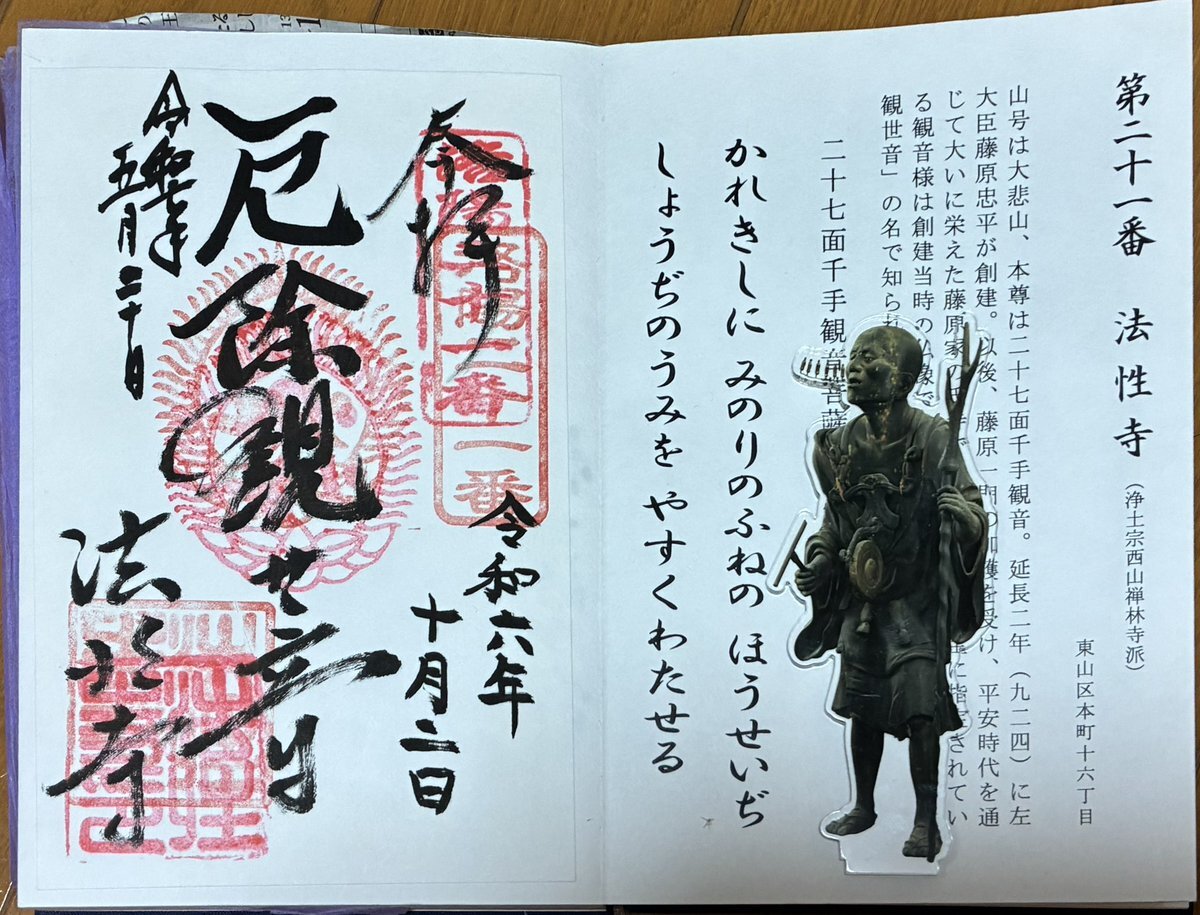 第二十一番 法性寺（浄土宗西山禅林寺派）
東山区本町十六丁目
山号は大悲山、本尊は二十七面千手観音。延長二年（九二四）に左
大臣藤原忠平が創建。以後、藤原一門の加護を受け、平安時代を通
じて大いに栄えた藤原家の
に指定されてい
る観音様は創建当時の仏像で
観世音」の名で知られ
二十七面千手観音菩薩
かれきしに みのりのふねの ほうせいぢ
しょうぢのうみを やすくわたせる
奉拝
令和六年
十月二日
厄除観世音
法性寺
令和七年
五月二十日